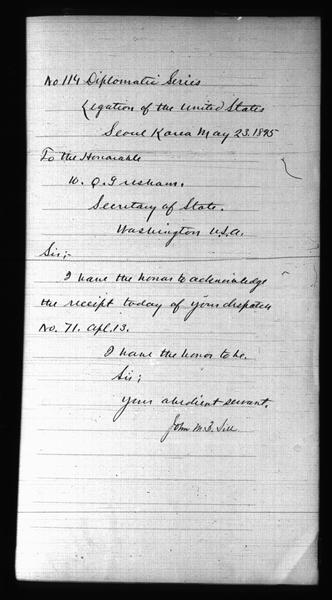 No 114 Diplomatic Series
Legation of the United States
Seoul Korea May 23. 1895
To the Honorable
W. Q. Gresham.
Secretary of State.
Washington U.S.A.
Sir;-
I have the honor to acknowledge
the receipt today of your dispatch
No. 71. Apl. 13.
I have the honor to be.
Sir;
your obedient servant.
John M. B. Sill